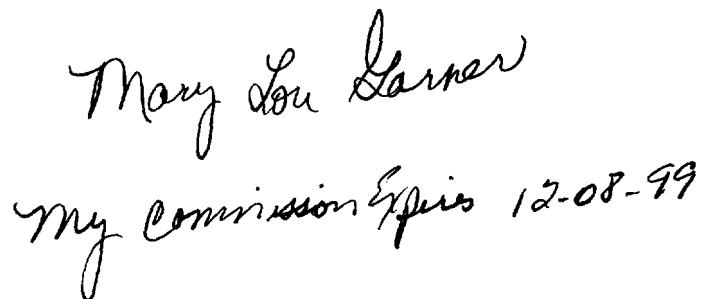 Mary Lou Garner
My Commission Expires 12-08-99